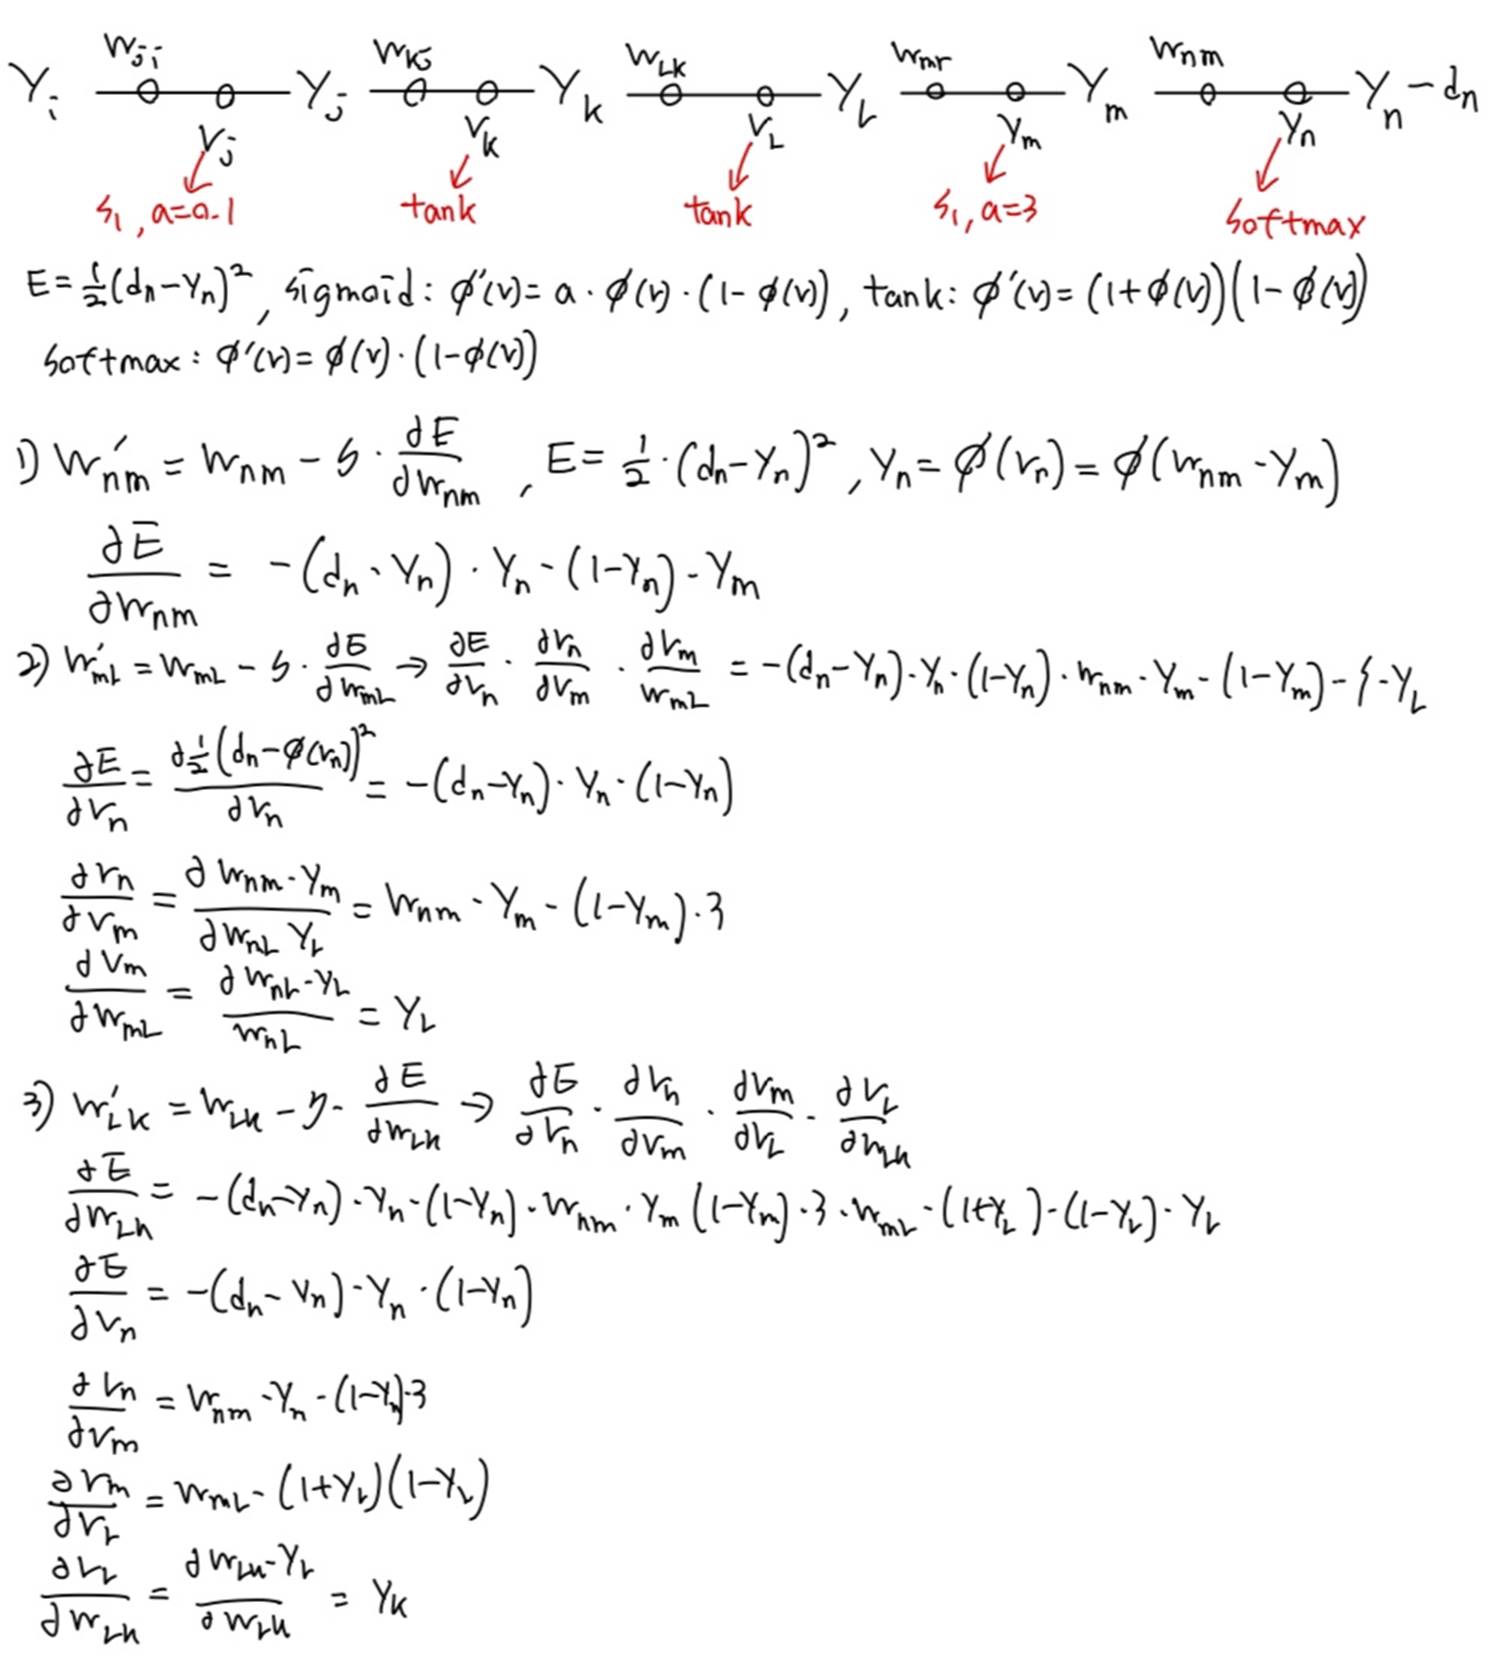 Yi Wji Vj Yj Wkj Vk Yk WLK VL YL Wmr Ym Ym Wnm Yn Yn - dn
S1, a=0.1 tank tank S1, a=3 Softmax
E = 1/2(dn-Yn)², Sigmoid: φ'(v) = a·φ(v)·(1-φ(v)), tank: φ'(v) = (1+φ(v))(1-φ(v))
Softmax: φ'(v) = φ(v)·(1-φ(v))
1) W'nm = Wnm - S·∂E/∂Wnm, E = 1/2·(dn-Yn)², Yn = φ(Vn) = φ(Wnm-Ym)
∂E/∂Wnm = -(dn·Yn)·Yn-(1-Yn)-Ym
2) W'mL = WmL - S·∂E/∂WmL → ∂E/∂Vn · ∂Vn/∂Vm · ∂Vm/WmL = -(dn-Yn)·Yn·(1-Yn)·Wnm·Ym-(1-Ym)-S-YL
∂E/∂Vn = ∂1/2(dn-φ(Vn))²/∂Vn = -(dn-Yn)·Yn·(1-Yn)
∂Vn/∂Vm = ∂Wnm·Ym/∂WnL YL = Wnm·Ym-(1-Ym)·3
∂Vm/∂WmL = ∂WnL-YL/WnL = YL
3) W'LK = WLK - η·∂E/∂WLK → ∂E/∂Vn · ∂Vn/∂Vm · ∂Vm/∂VL · ∂VL/∂WLK
∂E/∂WLK = -(dn-Yn)·Yn·(1-Yn)·Wnm·Ym(1-Ym)·3·WmL·(1+YL)·(1-YL)·YL
∂E/∂Vn = -(dn-Vn)·Yn·(1-Yn)
∂Vn/∂Vm = Wnm·Yn-(1-Yn)·3
∂Vm/∂VL = WmL-(1+YL)(1-YL)
∂VL/∂WLK = ∂WLK-YL/∂WLK = YK